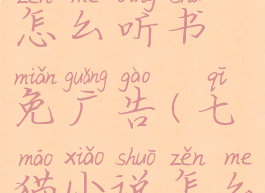 zěn me tīng shū
怎么听书
miǎn guǎng gào qī
免广告(七
māo xiǎo shuō zěn me
猫小说怎么